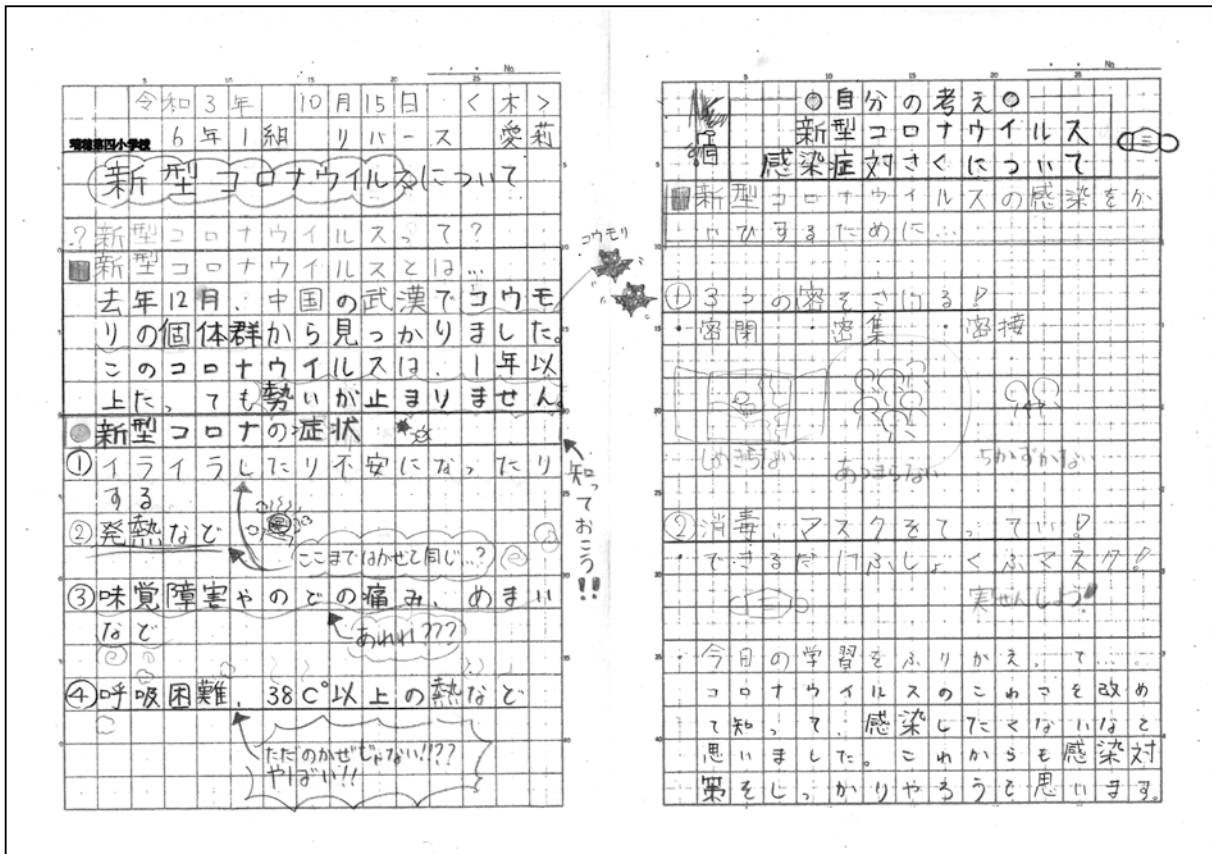 令和3年 10月15日 <木>
瑞穂第四小学校 6年1組 リバース 愛莉
新型コロナウイルスについて
?新型コロナウイルスって?
新型コロナウイルスとは…
去年12月、中国の武漢でコウモ
リの個体群から見つかりました。
このコロナウイルスは、1年以
上たっても勢いが止まりません。
コウモリ
新型コロナの症状
知っておこう!!
①イライラしたり不安になったり
する
②発熱など
ここまではかぜと同じ…?
③味覚障害やのどの痛み、めまい
など
あれれ???
④呼吸困難、38C°以上の熱など
ただのかぜじゃない!!??
やばい!!
◎自分の考え◎
新型コロナウイルス
感染症対さくについて
新型コロナウイルスの感染をか
いひするために…
①3つの密をさける!
・密閉 ・密集 ・密接
しめきらない
あつまらない
ちかずかない
②消毒、マスクをてってい!
・できるだけふしょくふマスク!
実せんしよう!
・今日の学習をふりかえって…。
コロナウイルスのこわさを改め
て知って、感染したくないなと
思いました。これからも感染対
策をしっかりやろうと思います。